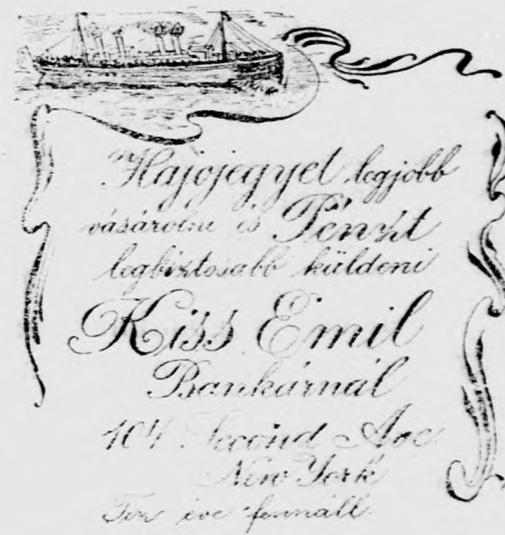 Hajójegyet legjobb
vásárolni és Pénzt
legbiztosabb küldeni
Kiss Emil
Bankárnál
104 Second Ave
New York
Tiz éve fennáll.